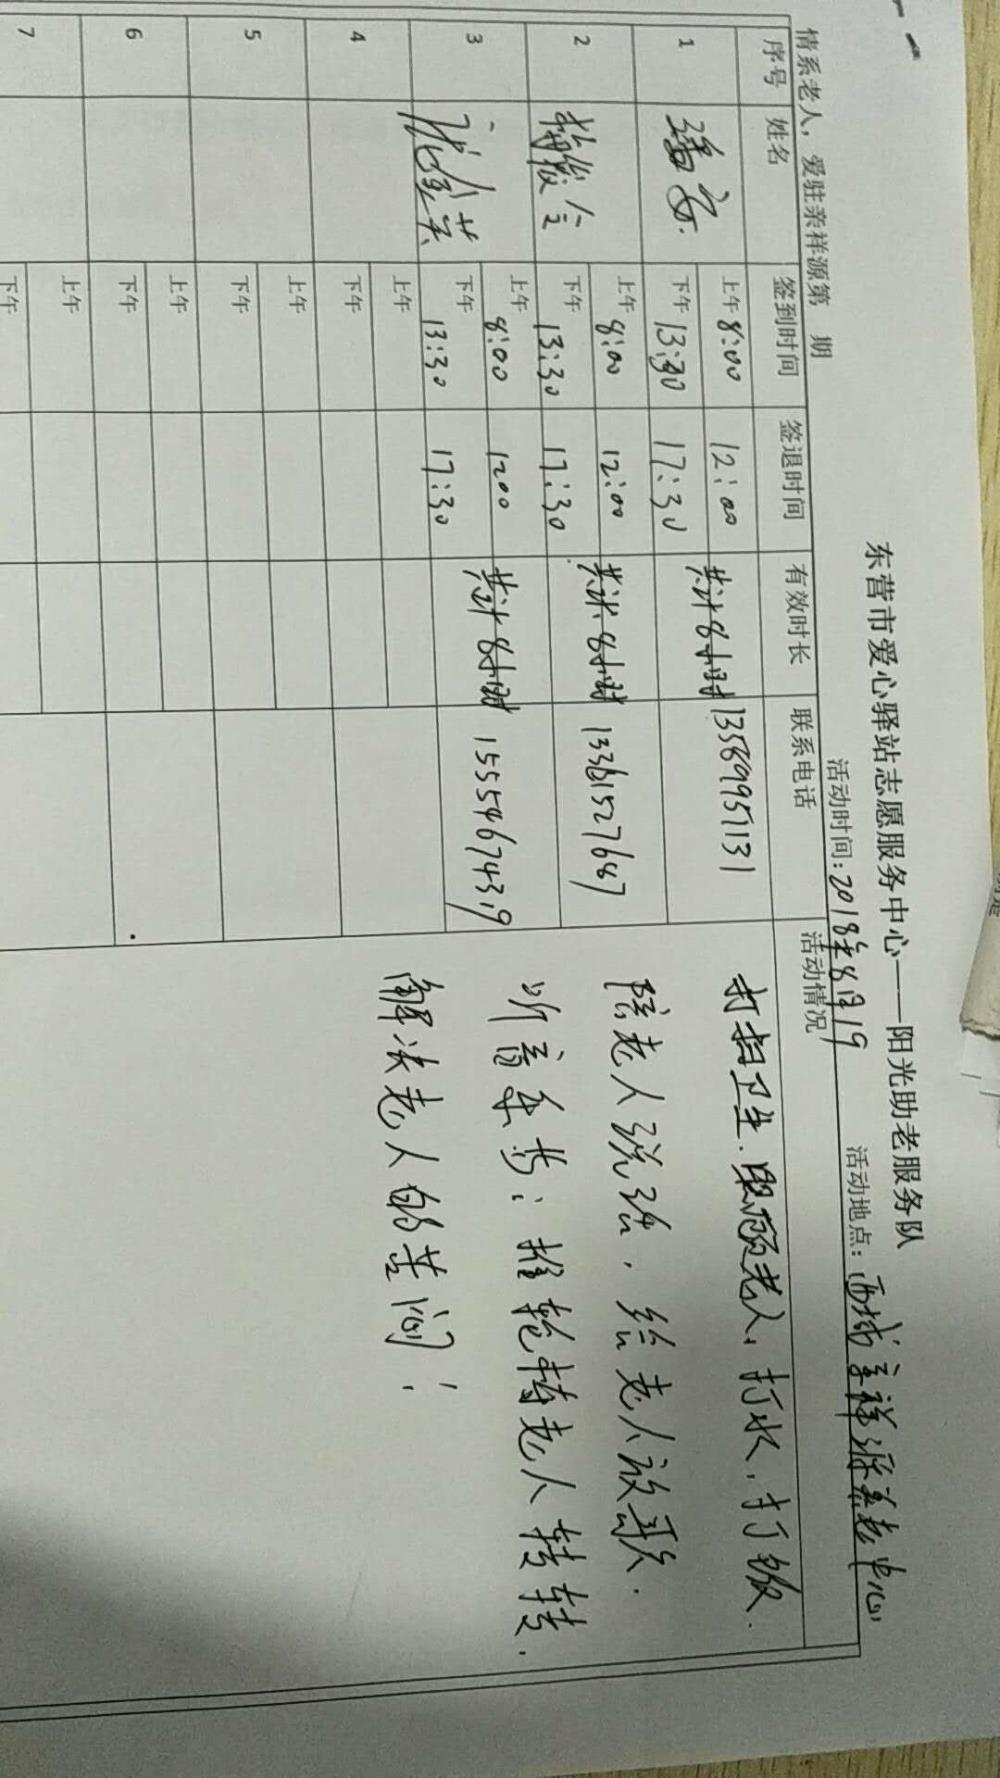 东营市爱心驿站志愿服务中心——阳光助老服务队
情系老人，爱驻亲样源第 期 活动时间：2018年8月19 活动地点：西城亲祥源养老中心
序号 姓名 签到时间 签退时间 有效时长 联系电话 活动情况
1 上午 8:00 12:00 共计8小时 13589951131
下午 13:30 17:30
2 上午 8:00 12:00 共计8小时 13361527687
下午 13:30 17:30
3 上午 8:00 1200 共计8小时 15554674319
下午 13:30 17:30
4 上午
下午
5 上午
下午
6 上午
下午
7
下午
打扫卫生.照顾老人，打水，打饭.
陪老人说话，给老人放歌.
听音乐；推轮椅老人转转.
解决老人的苦闷！